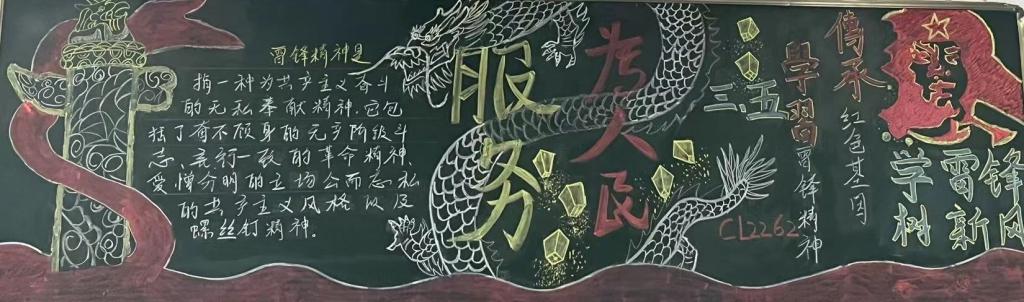 雷锋精神是
指一种为共产主义奋斗
的无私奉献精神.它包
括了奋不顾身的无产阶级斗
志、言行一致的革命精神、
爱憎分明的立场公而忘私
的共产主义风格以及
螺丝钉精神。
服务
为人民
三五
CL2262
學習雷锋精神
傳承红色基因
学雷锋
树新风